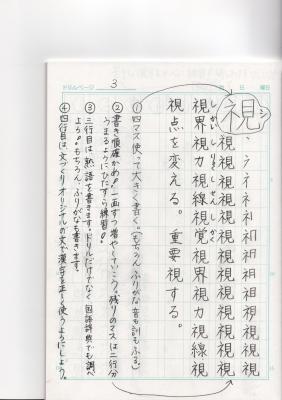 ドリルページ 3 月 日 曜日
視 シ
視視視視視視視視視視
しかい しりょく しせん しかく
視界視力視線視覚視界視力視線視
視点を変える。重要視する。
①四マス使って大きく書く。(もちろん、ふりがな音も訓もふる)
②書き順確かめ!一画ずつ増やしていこう。残りのマスは二行分
うまるようにひたすら練習!
③三行目は、熟語を書きます。ドリルだけでなく国語辞典でも調べ
よう。もちろん、ふりがなも書きます。
④四行目は、文づくりオリジナルの文で漢字を正しく使うようにしよう。